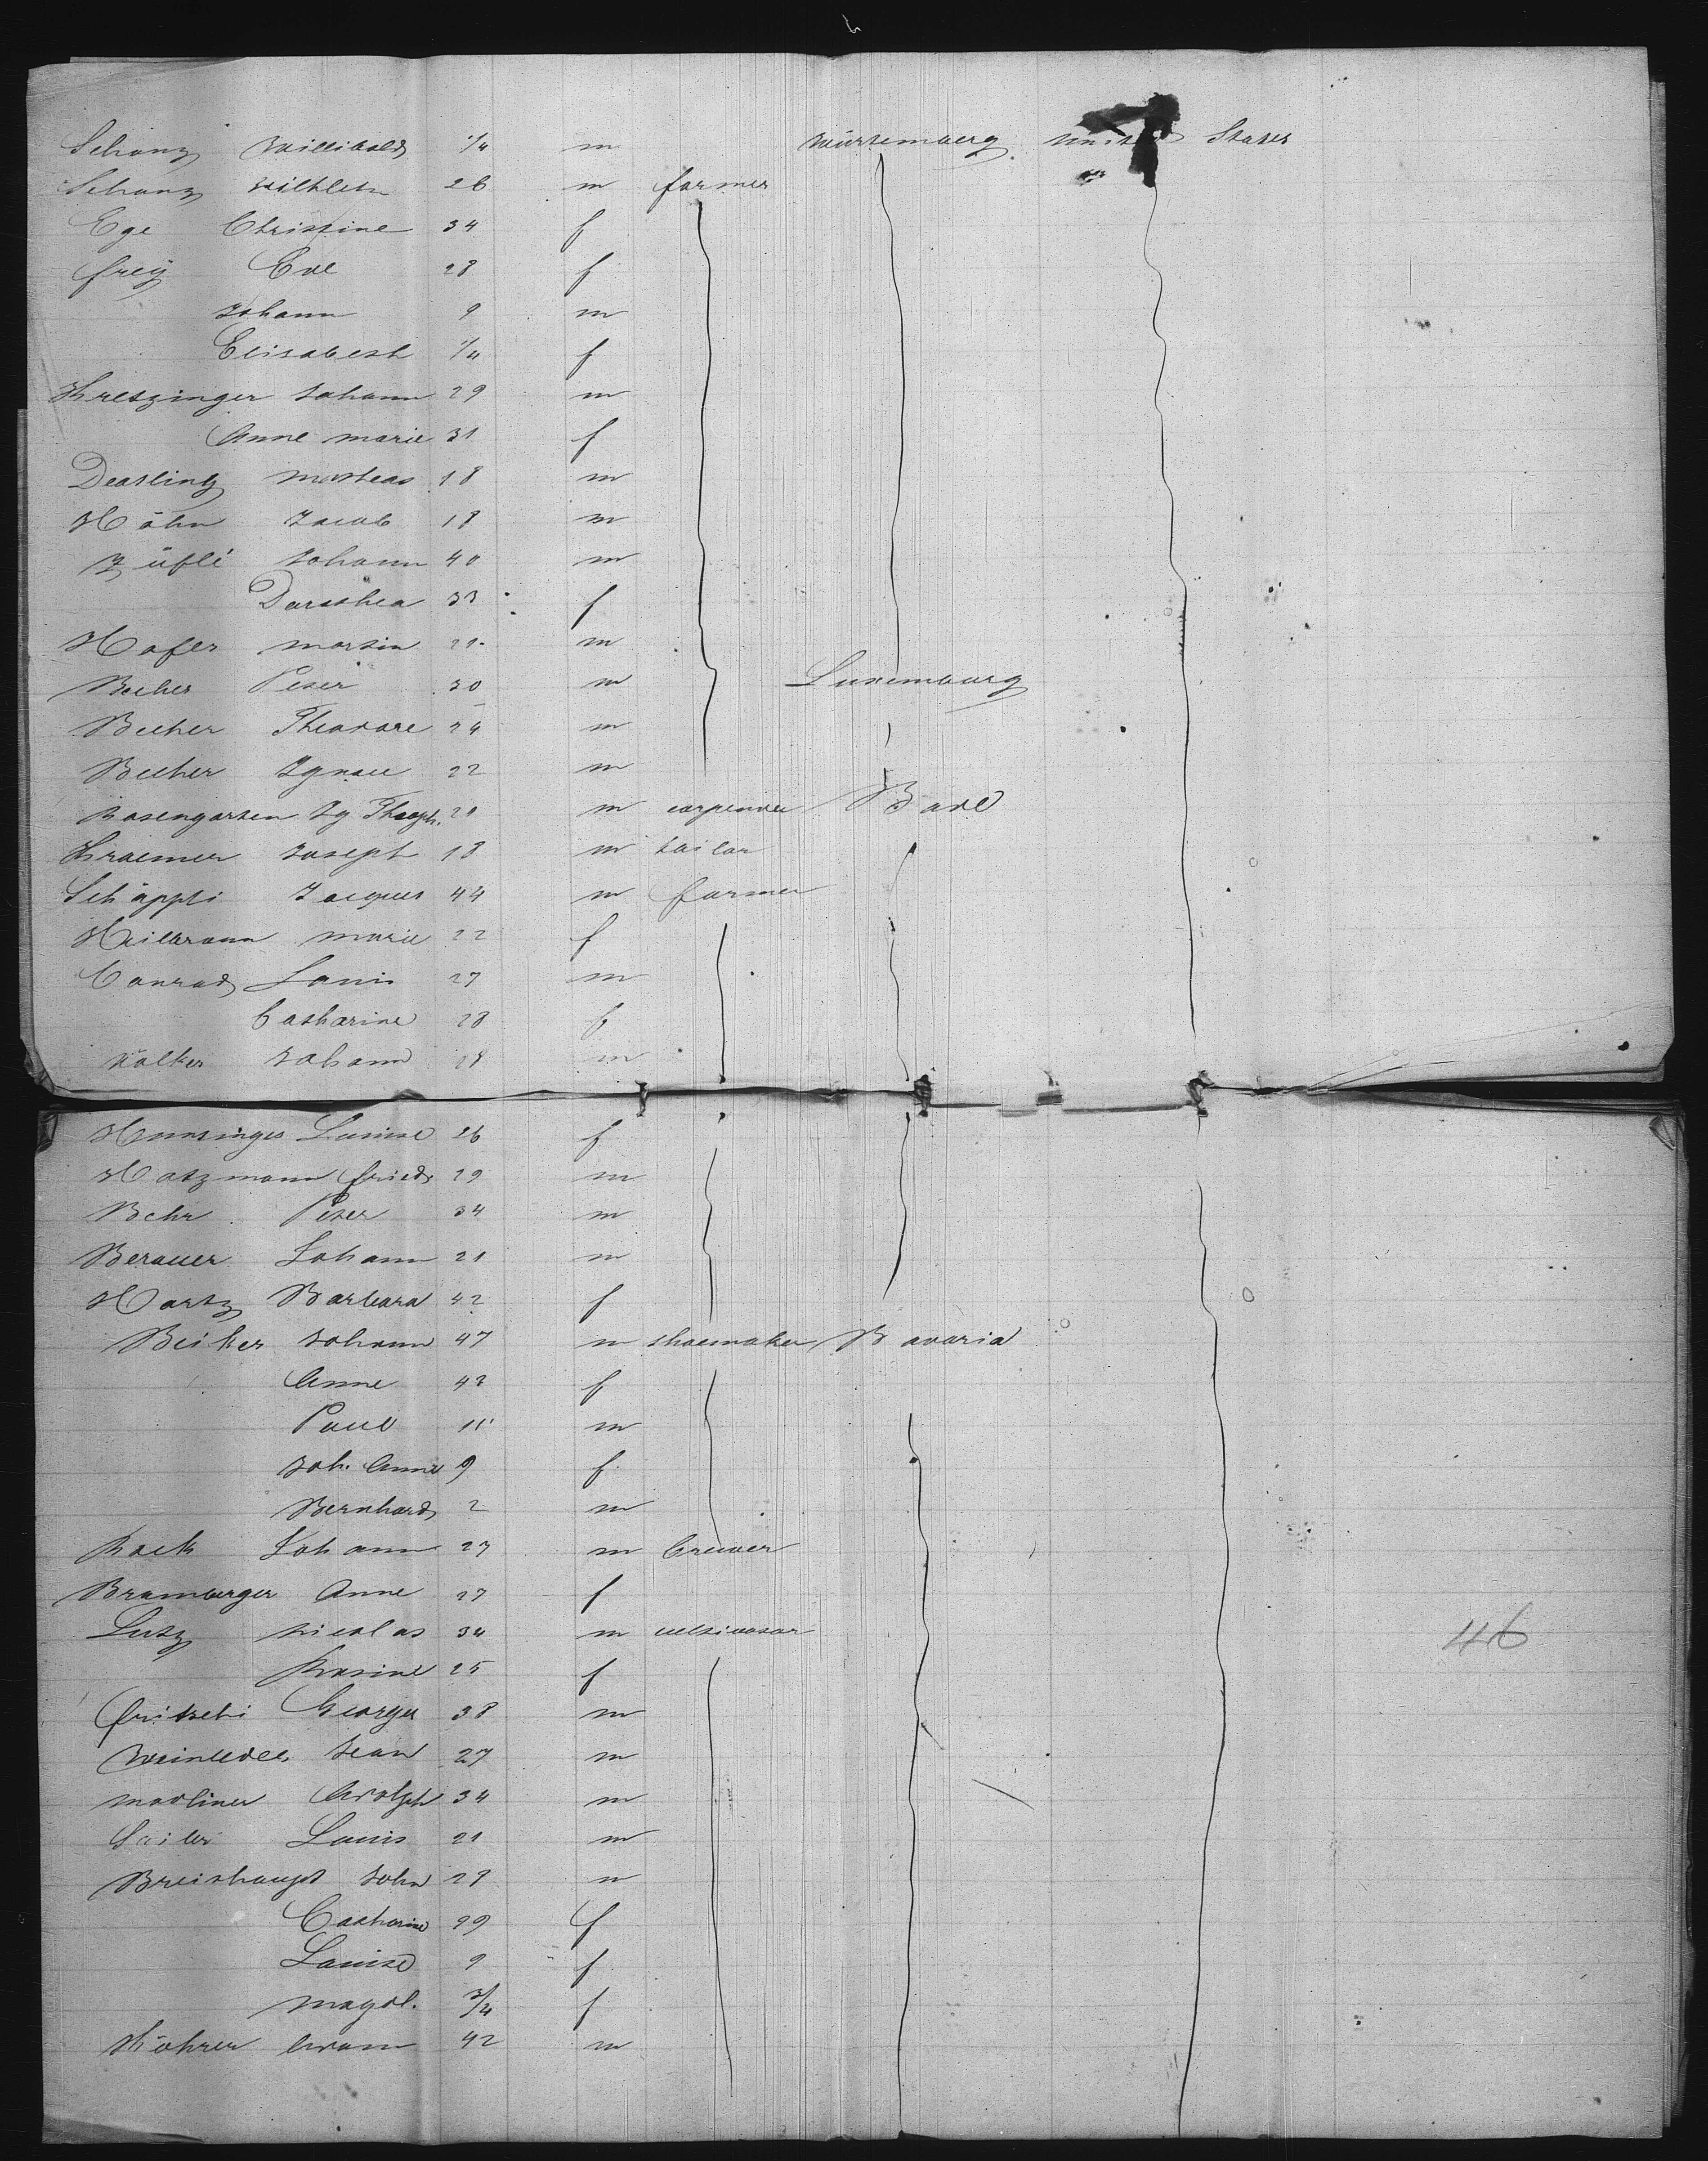 Schanz Willibald 1/4 m Würtemberg United States
Schanz 26 m farmer
Ege Christine 34 f
Freÿ Eve 28 f
Johann 9 m
Elisabeth 1/4 f
Kretzinger Johann 29 m
Anne Marie 31 f
18 m
Höhn Jacob 18 m
Züfle Johann 40 m
Dorothea 33 f
Hofer Martin 21 m
Becher Peter 30 m Luxemburg
Becher Theodore 24 m
Becher Ignace 22 m
Rosengarten 21 m carpender Bade
Kraemer Joseph 18 m tailor
Schäppi Jacques 44 m farmer
Heilbronn Marie 22 f
Conrad Louis 27 m
Catharine 28 f
Johann 18 m
Louise 26 f
Hatzmann Friedr 29 m
Behr Peter 34 m
Berauer Johann 21 m
Hartz Barbara 42 f
Beiker Johann 47 m shoemaker Bavaria
Anne 43 f
Paul 11 m
Joh. Anne 9 f
Bernhard 2 m
Rock Johann 27 m brewer
Bramberger Anne 27 f
Lutz Nicolas 34 m cultivator
Rosine 25 f
Fritschi George 38 m
Jean 27 m
Adolph 34 m
Sailer Louis 21 m
Breithaupt John 29 m
Catharine 29 f
Louise 9 f
Magdl. 3/4 f
Köhrer Adam 42 m
46